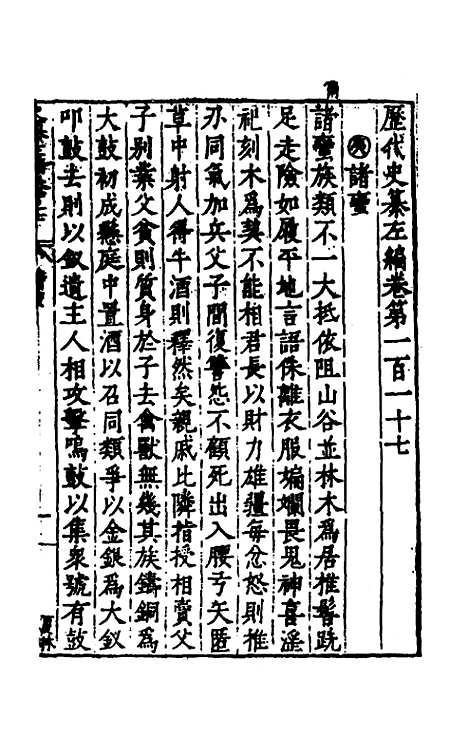 歷代史纂左編卷第一百一十七
夷諸蠻
諸蠻族類不一大抵依阻山谷並林木爲居椎髻跣
足走險如履平地言語侏離衣服斒斕畏鬼神喜淫
祀刻木爲契不能相君長以財力雄彊每忿怒則推
刃同氣加兵父子間復讐怨不顧死出入腰弓矢匿
草中射人得牛酒則釋然矣親戚比隣指授相賣父
子别業父貧則質身於子去禽獸無幾其族鑄銅爲
大鼓初成懸庭中置酒以召同類爭以金銀爲大釵
叩鼓去則以釵遺主人相攻擊鳴鼓以集衆號有鼓